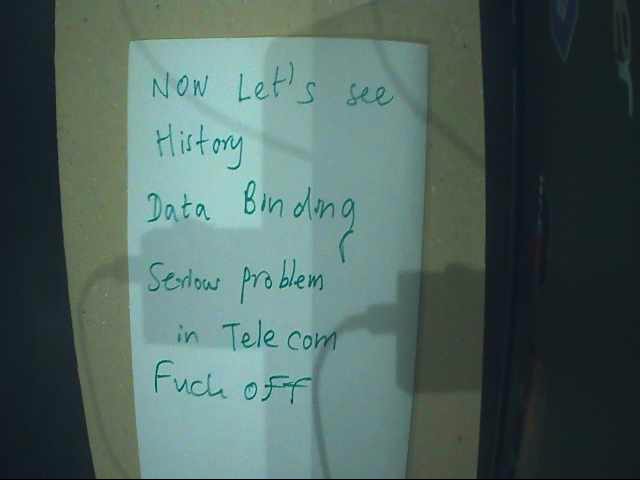 Now Let's see
History
Data Binding
Serious problem
in Telecom
Fuck off